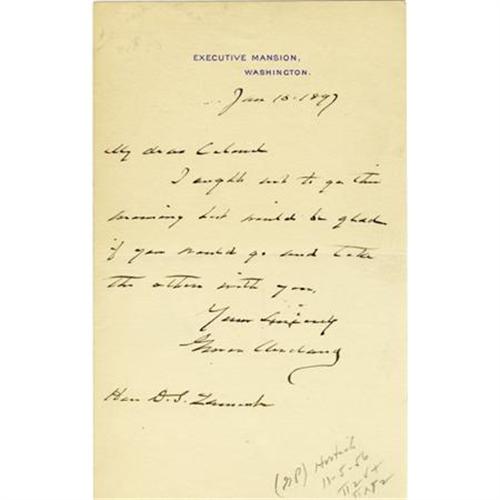 EXECUTIVE MANSION,
WASHINGTON.
Jan 15 - 1897
My dear Colonel
I ought not to go this
morning but would be glad
if you would go and take
the others with you.
Yours sincerely
Grover Cleveland
Hon D. S. Lamont
11-5-56